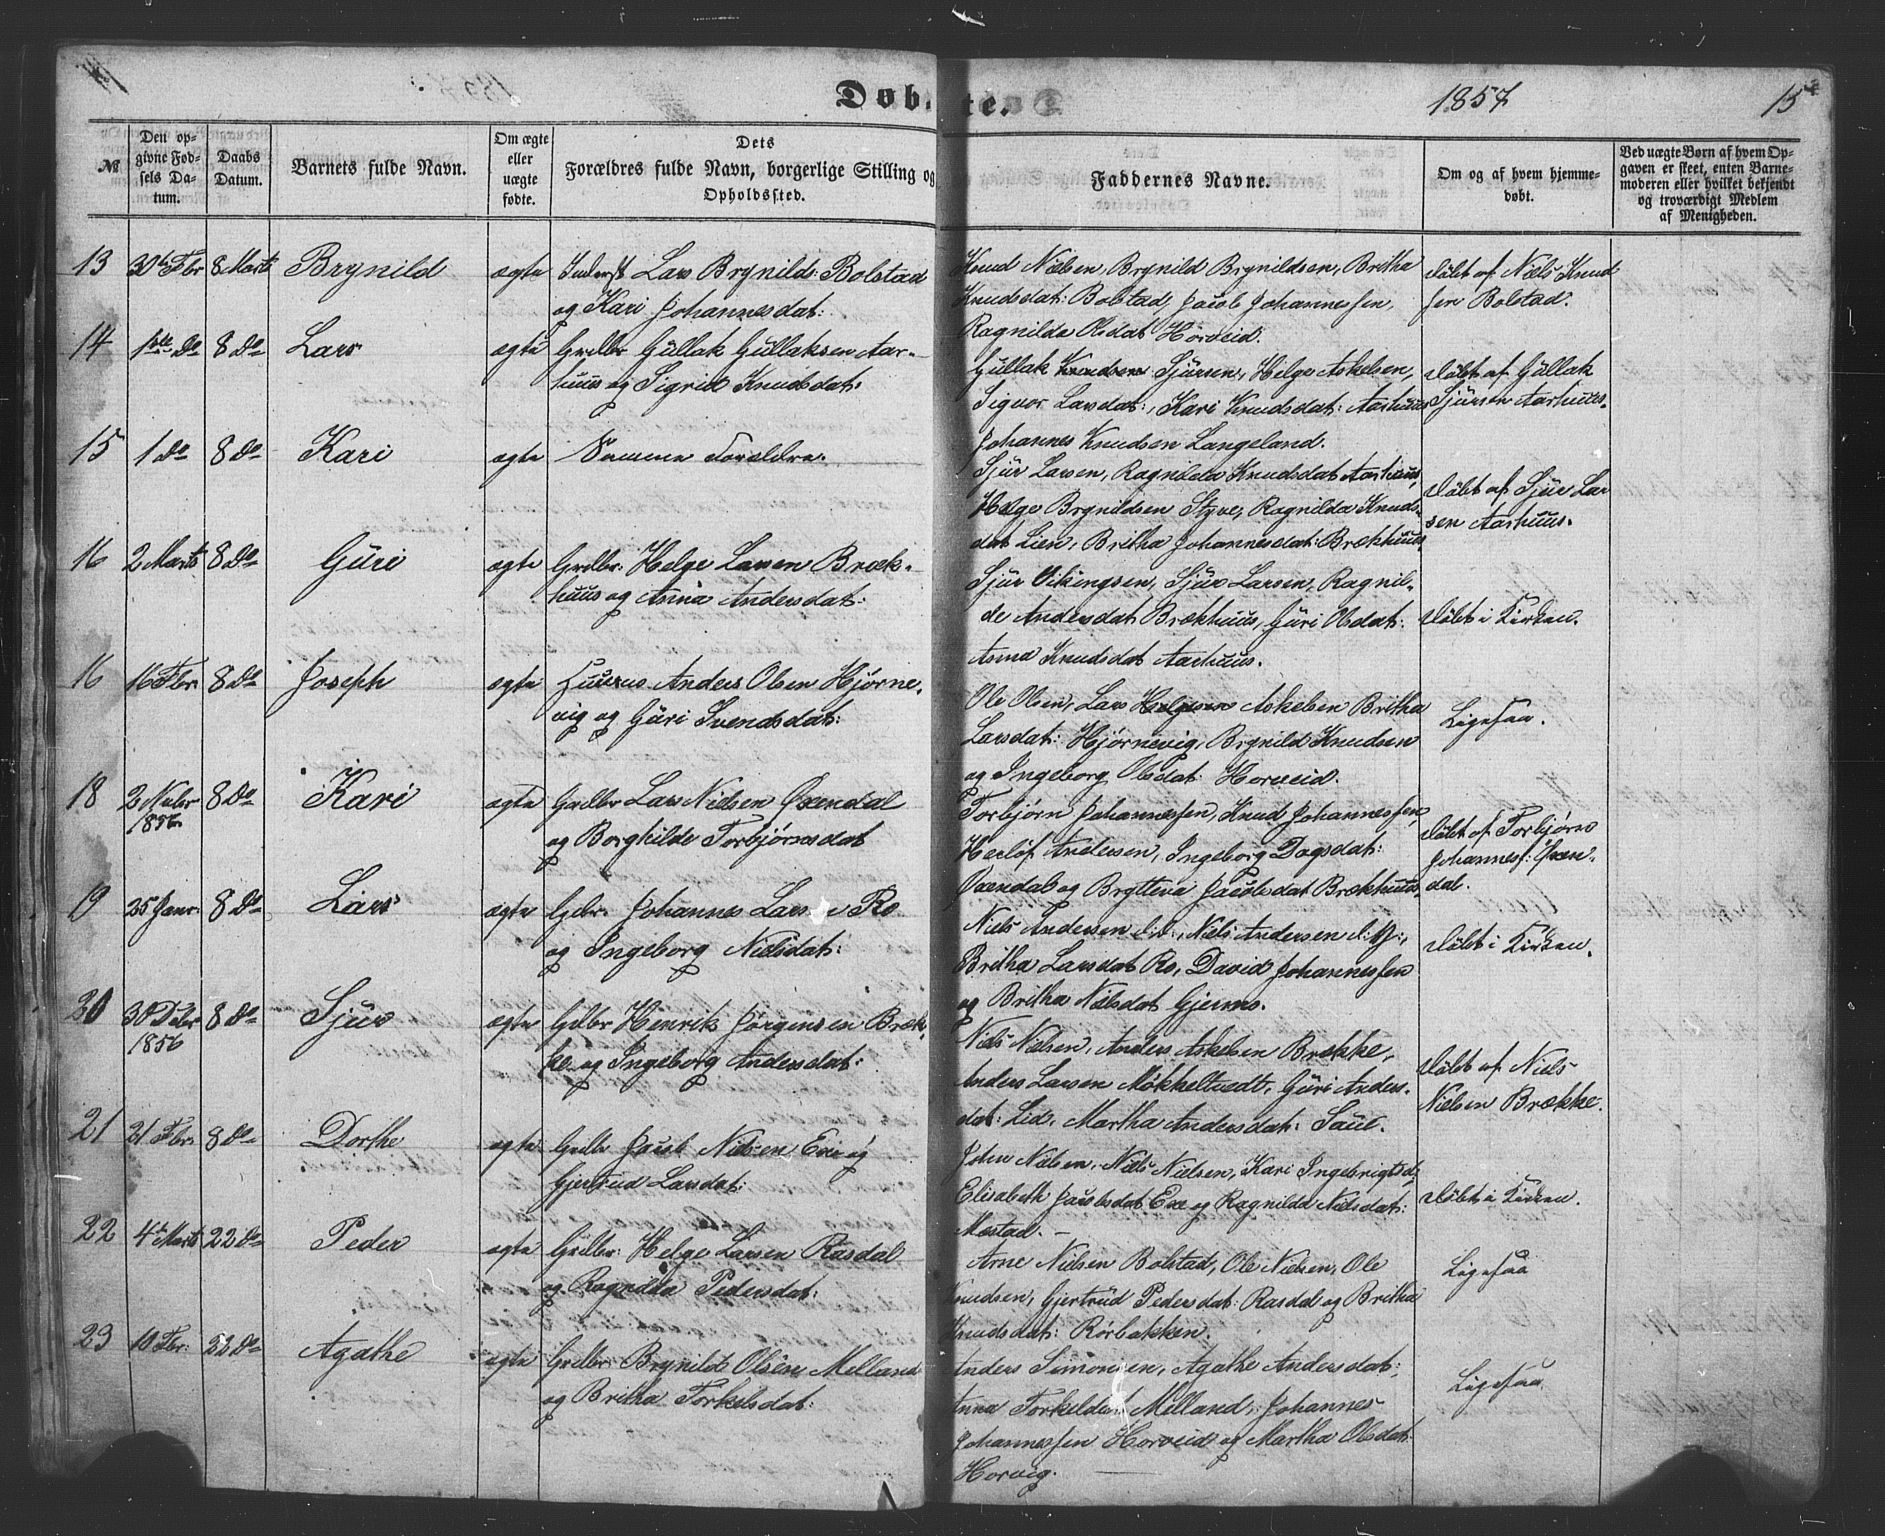 Døbte.
1857
15
№
Den opgivne Fødsels Datum.
Daabs Datum.
Barnets fulde Navn.
Om ægte eller uægte fødte.
Dets Forældres fulde Navn, borgerlige Stilling og Opholdssted.
Faddernes Navne.
Om og af hvem hjemmedøbt.
Ved uægte Børn af hvem Opgaven er skeet, enten Barnemoderen eller hvilket bekjendt og troværdigt Medlem af Menigheden.
13 30 Fbr 8 Marts Brynild ægte Inderst Lars Brynilds: Bolstad
og Kari Johannesdat:
Knud Nielsen, Brynild Brynildsen, Britha
Knudsdat: Bolstad, Jacob Johannessen,
Ragnilda Olsdat Horveid.
Døbt af Niels Knud
sen Bolstad.
14 1 Do 8 Do Lars ægte Grdbr Gullak Gullaksen Aar-
huus og Sigrid Knudsdat:
Gullak Knudsen Sjursen, Helge Askelsen,
Sigvor Larsdat:, Kari Knudsdat: Aarhuus
Johannes Knudsen Langeland.
Døbt af Gullak
Sjursen Aarhuus.
15 1 Do 8 Do Kari ægte Samme Forældre.
Sjur Larsen, Ragnilda Knudsdat Aarhuus,
Helge Brynildsen Styve, Ragnilda Knuds-
dat Lien, Britha Johannesdat: Brækhuus
Døbt af Sjur Lar
sen Aarhuus.
16 2 Marts 8 Do Guri ægte Grdbr: Helge Larsen Bræk-
huus og Anna Andersdat:
Sjur Vikingsen, Sjur Larsen, Ragnil-
de Andersdat Brækhuus, Guri Olsdat:
Anna Knudsdat Aarhuus.
Døbt i Kirken.
16 16 Fbr. 8 Do Joseph ægte Huusm Anders Olsen Hjørne-
vig og Guri Svendsdat:
Ole Olsen, Lars Helgesen Askelsen Britha
Larsdat: Hjørnevig, Brynild Knudsen
og Ingeborg Olsdat: Horveid.
Ligesaa.
18 2 Nvbr 1856 8 Do Kari ægte Grdbr Lars Nielsen Øxendal
og Borghilde Torbjørnsdat
Torbjørn Johannessen, Knud Johannessen,
Herlof Andersen, Ingeborg Dagsdat:
Øxendal og Brytteva Jacobsdat Brækhuus.
Døbt af Torbjørn
Johannes: Øxen-
dal.
19 25 Janr: 8 Do Lars ægte Gdbr. Johannes Larsen Ro
og Ingeborg Nielsdat:
Niels Andersen, Niels Andersen d: y:,
Britha Larsdat Ro, David Johannessen
og Britha Nielsdat Gjerme.
Døbt i Kirken.
20 30 Dcbr 1856 8 Do Sjur ægte Gdbr Henrik Jørgensen Bræk-
ke og Ingeborg Andersdat:
Niels Nielsen, Anders Askelsen Brække,
Anders Larsen Møkkeltvedt, Guri Anders-
dat: Lid, Martha Andersdat: Saue.
Døbt af Niels
Nielsen Brække.
21 21 Fbr: 8 Do Dorthe ægte Grdbr Jacob Nielsen Exe og
Gjertrud Larsdat:
John Nielsen, Niels Nielsen, Kari Ingebrigtsd,
Elisabeth Jacobsdat: Exe og Ragnilda Nielsdat:
Mostad.
Døbt i Kirken.
22 4 Marts 22 Do Peder ægte Grdbr: Helge Larsen Rasdal
og Ragnilda Pedersdat:
Arne Nielsen Bolstad, Ole Nielsen, Ole
Knudsen, Gjertrud Pedersdat: Rasdal og Britha
Knudsdat: Rørbakken.
Ligesaa
23 10 Fbr: 22 Do Agathe ægte Grdbr Brynild Olsen Melland
og Britha Torkelsdat:
Anders Simonsen, Agathe Andersdat:
Anna Torkeldat Melland, Johannes
Johannessen Horveid og Martha Olsdat:
Horvig.
Ligesaa